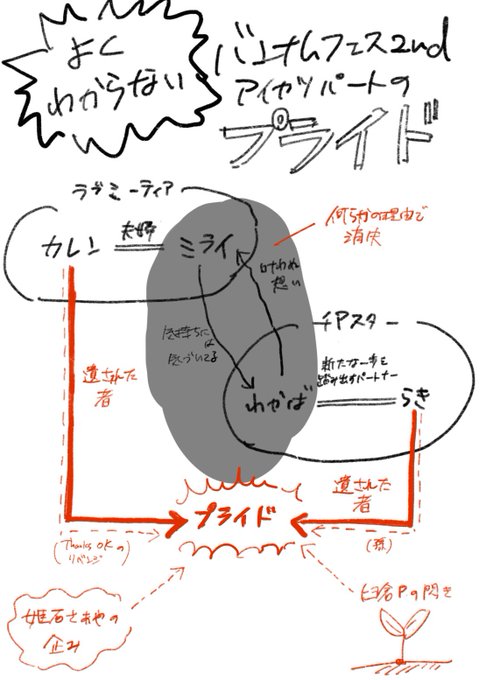 よく
わからない
バンナムフェス2nd
アイカツパートの
プライド
ラブミーティア
カレン
夫婦
ミライ
何らかの理由で
消失
叶わぬ
想い
気持ちに
は
気づいてる
チアスター
わかば
新たな一歩を
踏み出すパートナー
らき
遺された
者
遺された
者
プライド
(Thanks OKの
リベンジ)
姫石さあやの
企み
臼倉Pの閃き